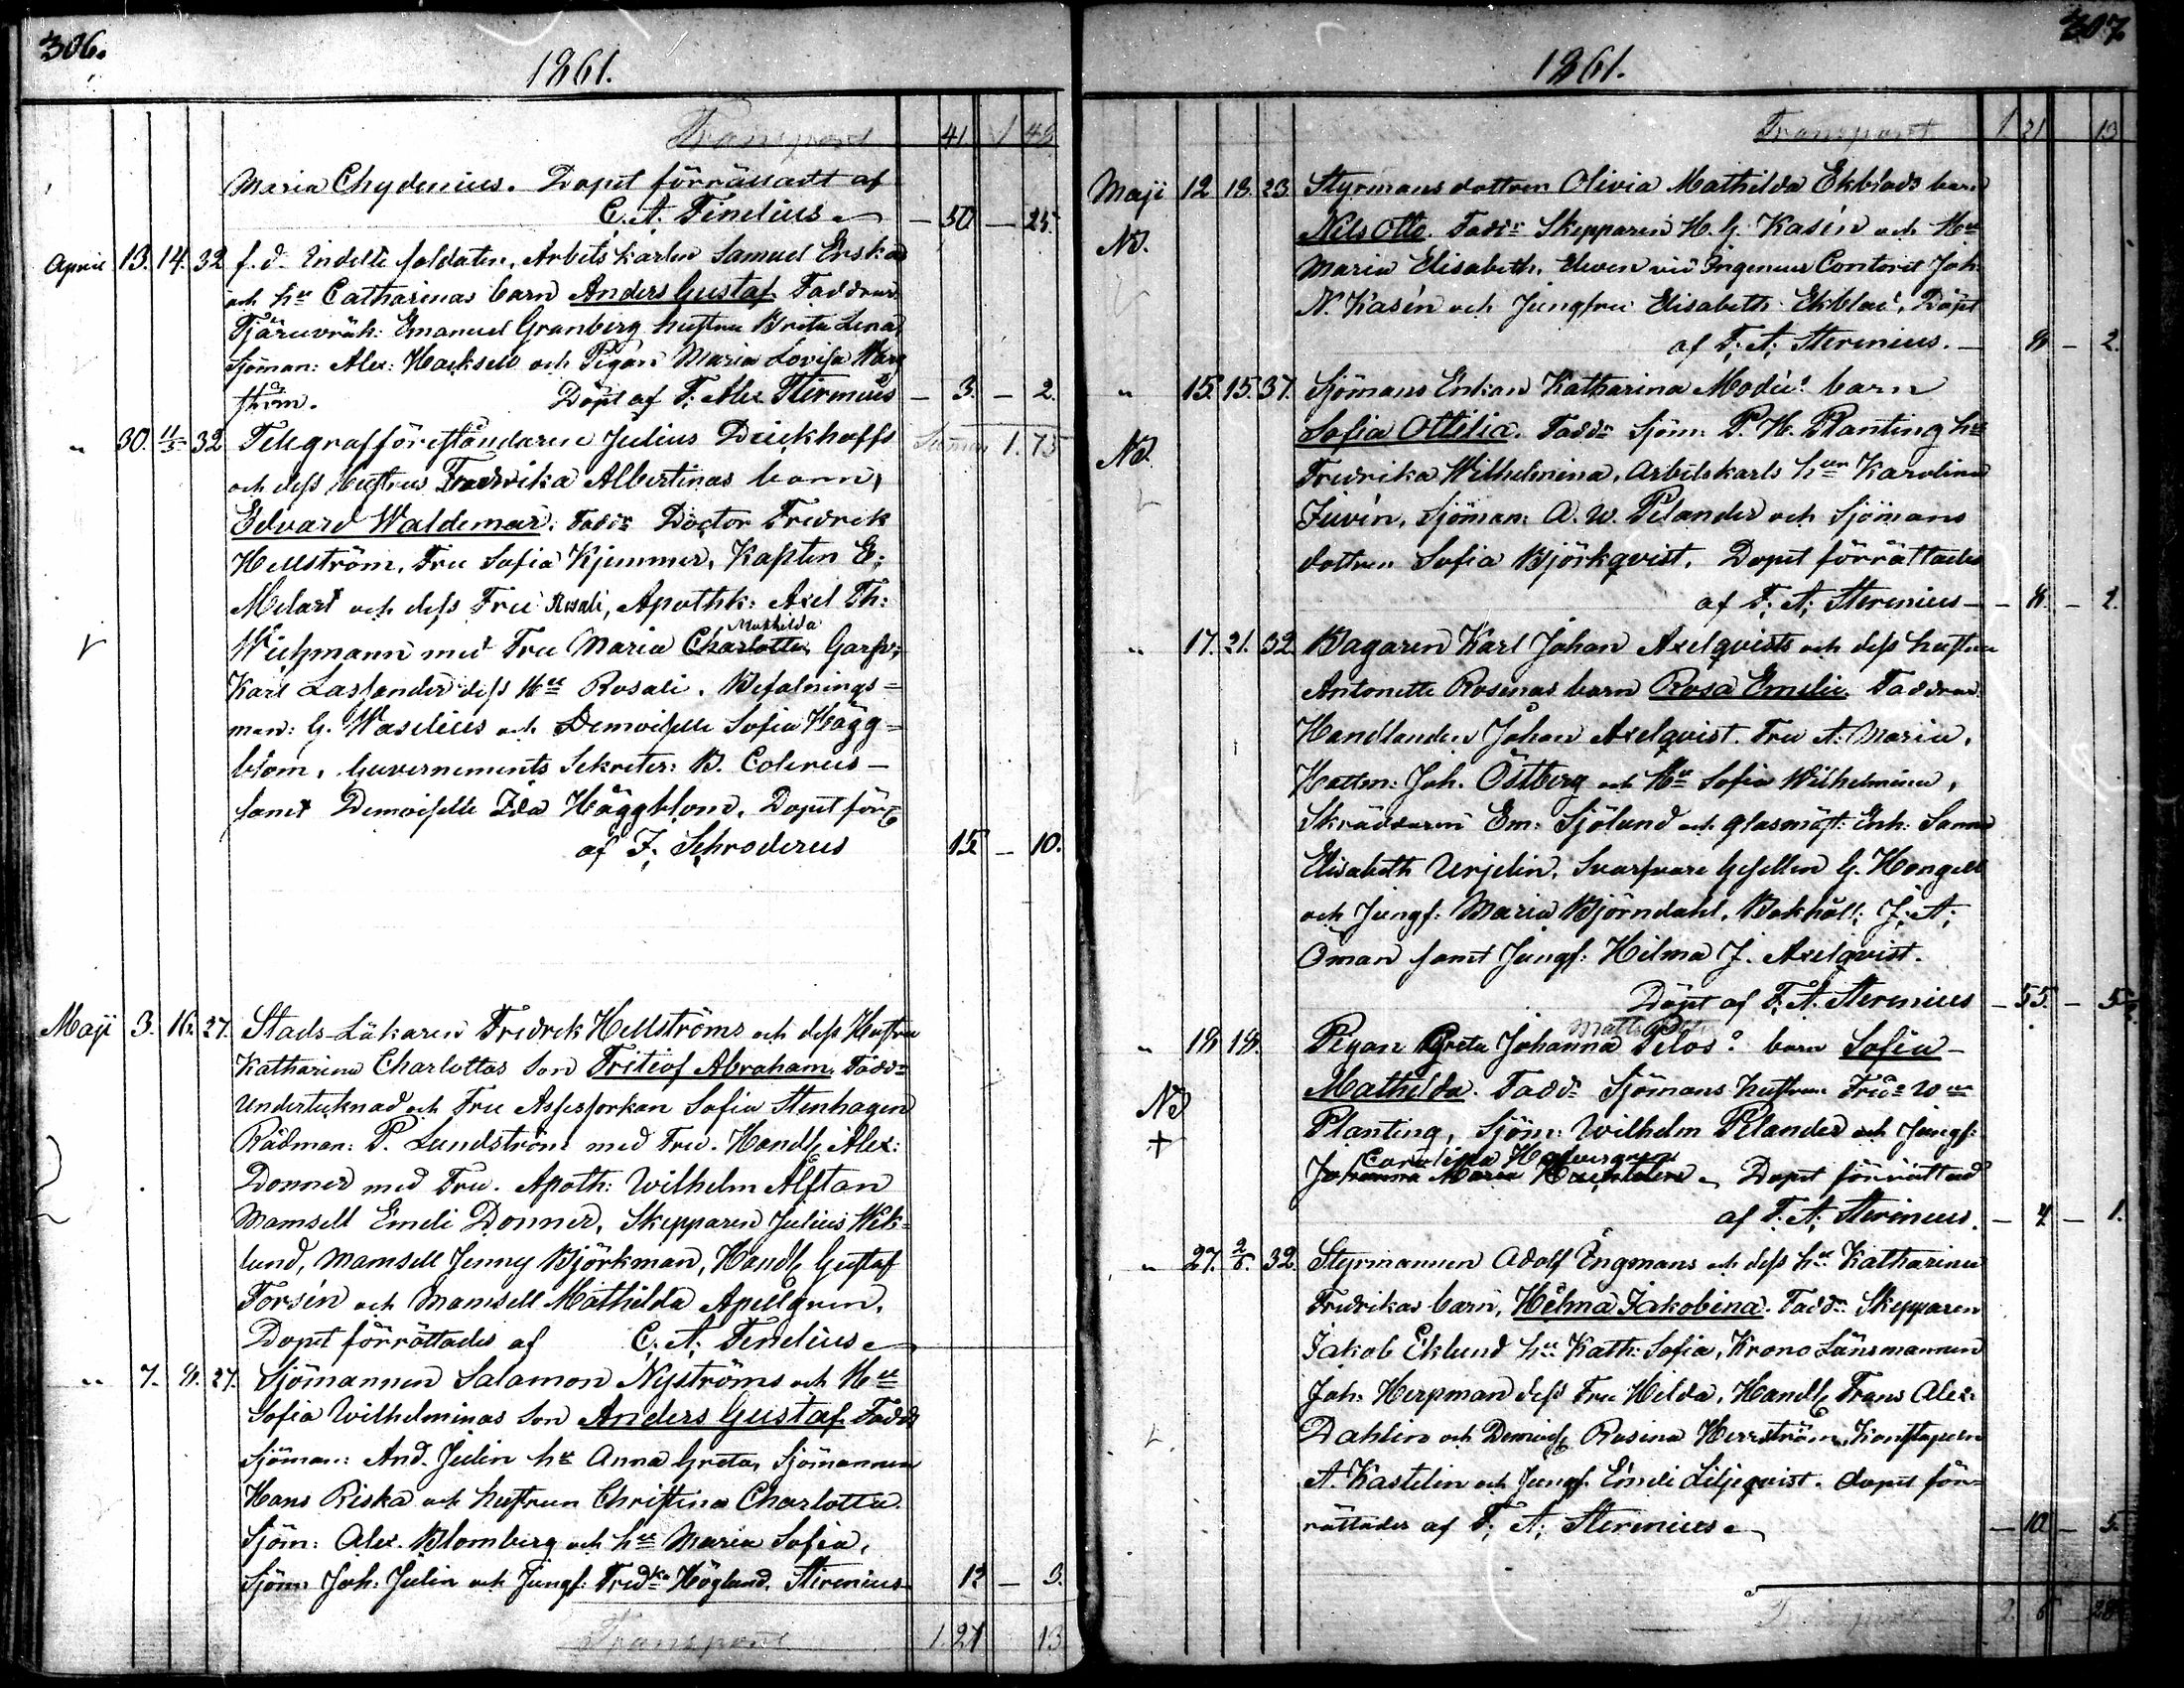 306.
1861.
Transport 41 1 48
Maria Chydenius. Dopet förrättadt af
C. A. Finelius — 50 — 25.
April 13. 14. 32 f. d. Indelte soldaten, Arbets karlen Samuel Enskas
och hu Catharinas barn Anders Gustaf. Faddrar
Tjäruvräk: Emanuel Granberg hustru Breta Lena,
Sjöman: Alex: Hacksell och Pigan Maria Lovisa
ström. Döpt af F. Alex Sterenius — 3. — 2.
" 30. 11/5 32 Telegrafföreståndaren Julius Dückhoffs Summa 1. 73
och dess hustrus Fredrika Albertinas barn,
Edvard Waldemar. Faddr Doctor Fredrik
Hellström, Fru Sofia Kjemmer, Kapten E.
Melart och dess Fru Rosali, Apothk: Axel Th:
Mathilda
Wichmann med Fru Maria Charlotta, Garfv:
Karl Lassander dess Hu Rosali. Befalnings=
man: G. Waselius och Demoiselle Sofia Hägg=
blom, Guvernements Sekreter: B. Colerus —
samt Demoiselle Ida Häggblom. Dopet för
af F. Schroderus 15 — 10.
Maji 3. 16. 27. Stads-Läkaren Fredrik Hellströms och dess Hustru
Katharina Charlottas Son Fritiof Abraham. Faddr
Undertecknad och Fru Assessorkan Sofia Stenhagen
Rådman: P. Lundström med Fru. Handl Alex:
Donner med Fru. Apoth: Wilhelm Alftan
Mamsell Emeli Donner, Skepparen Julius Wik=
lund, Mamsell Jenny Björkman, Handl Gustaf
Forsén och Mamsell Mathilda Apellgren.
Dopet förrättades af C. A. Finelius
" 7. 8. 27. Sjömannen Salamon Nyströms och Hu
Sofia Wilhelminas Son Anders Gustaf. Fadd
Sjöman: And. Julin hu Anna Greta, Sjömannen
Hans Riska och hustrun Christina Charlotta.
Sjöm: Alex. Blomberg och hu Maria Sofia,
Sjöm: Joh: Julin och Jungf: Fredka Höglund. Sterenius 12 — 3.
Transport 1. 21 13
207
1861.
Transport 1 21 13
Maji 12 18. 23 Styrmans dottren Olivia Mathilda Ekblads barn
Nd. Nils Otto. Faddr Skepparen H. G. Kasén och Hu
Maria Elisabeth, Eleven vid Ingenieur Contoret Joh.
N. Kasén och Jungfru Elisabeth Ekblad. Döpt
af F. A. Sterenius. — 8 — 2.
" 15. 15. 37. Sjömans Enkan Katharina Modée's barn
Nd. Sofia Ottilia. Faddr Sjöm: P. H. Planting hu
Fredrika Wilhelmina, Arbetskarls hun Karolina
Juvén, Sjöman: A. W. Pelander och Sjömans
dottren Sofia Björkqvist. Dopet förrättades
af F. A. Sterenius — 8. — 2.
" 17. 21. 32 Bagaren Karl Johan Axelqvists och dess hustru
Antonette Rosinas barn Rosa Emelie. Faddrar
Handlanden Johan Axelqvist. Fru A. Maria,
Hattm: Joh. Östberg och Hu Sofia Wilhelmina,
Skräddaren Em: Sjölund och glasmäst: Enk: Sanna
Elisabeth Urjelin, Svarfvare Gesellen G. Hongell
och Jungf: Maria Björndahl, Bokhåll: J. A.
Öman samt Jungf: Hilma J. Axelqvist.
Döpt af F. A. Sterenius — 55. — 5
Matts
" 18 18. Pigan Greta Johanna Pelos's barn Sofia
Nd Mathilda. Faddr Sjömans hustrun Freda W
+ Planting, Sjöm: Wilhelm Pelander och Jungf:
Carolina
Johanna Maria. Dopet förrättad
af F. A. Sterenius. — 4 — 1.
" 27. 2/6. 32. Styrmannen Adolf Engmans och dess hu Katharina
Fredrikas barn, Helma Jakobina. Faddr Skepparen
Jakob Eklund hu Kath: Sofia, Krono Länsmannen
Joh: Herpman dess Fru Hilda, Handl Frans Alex:
Dahlin och Demois Rosina Herrström, Konstapeln
A. Kastelin och Jungf. Emeli Liljeqvist. Dopet för=
rättades af F. A. Sterenius — 10 — 5.
Transport 2. 6 28